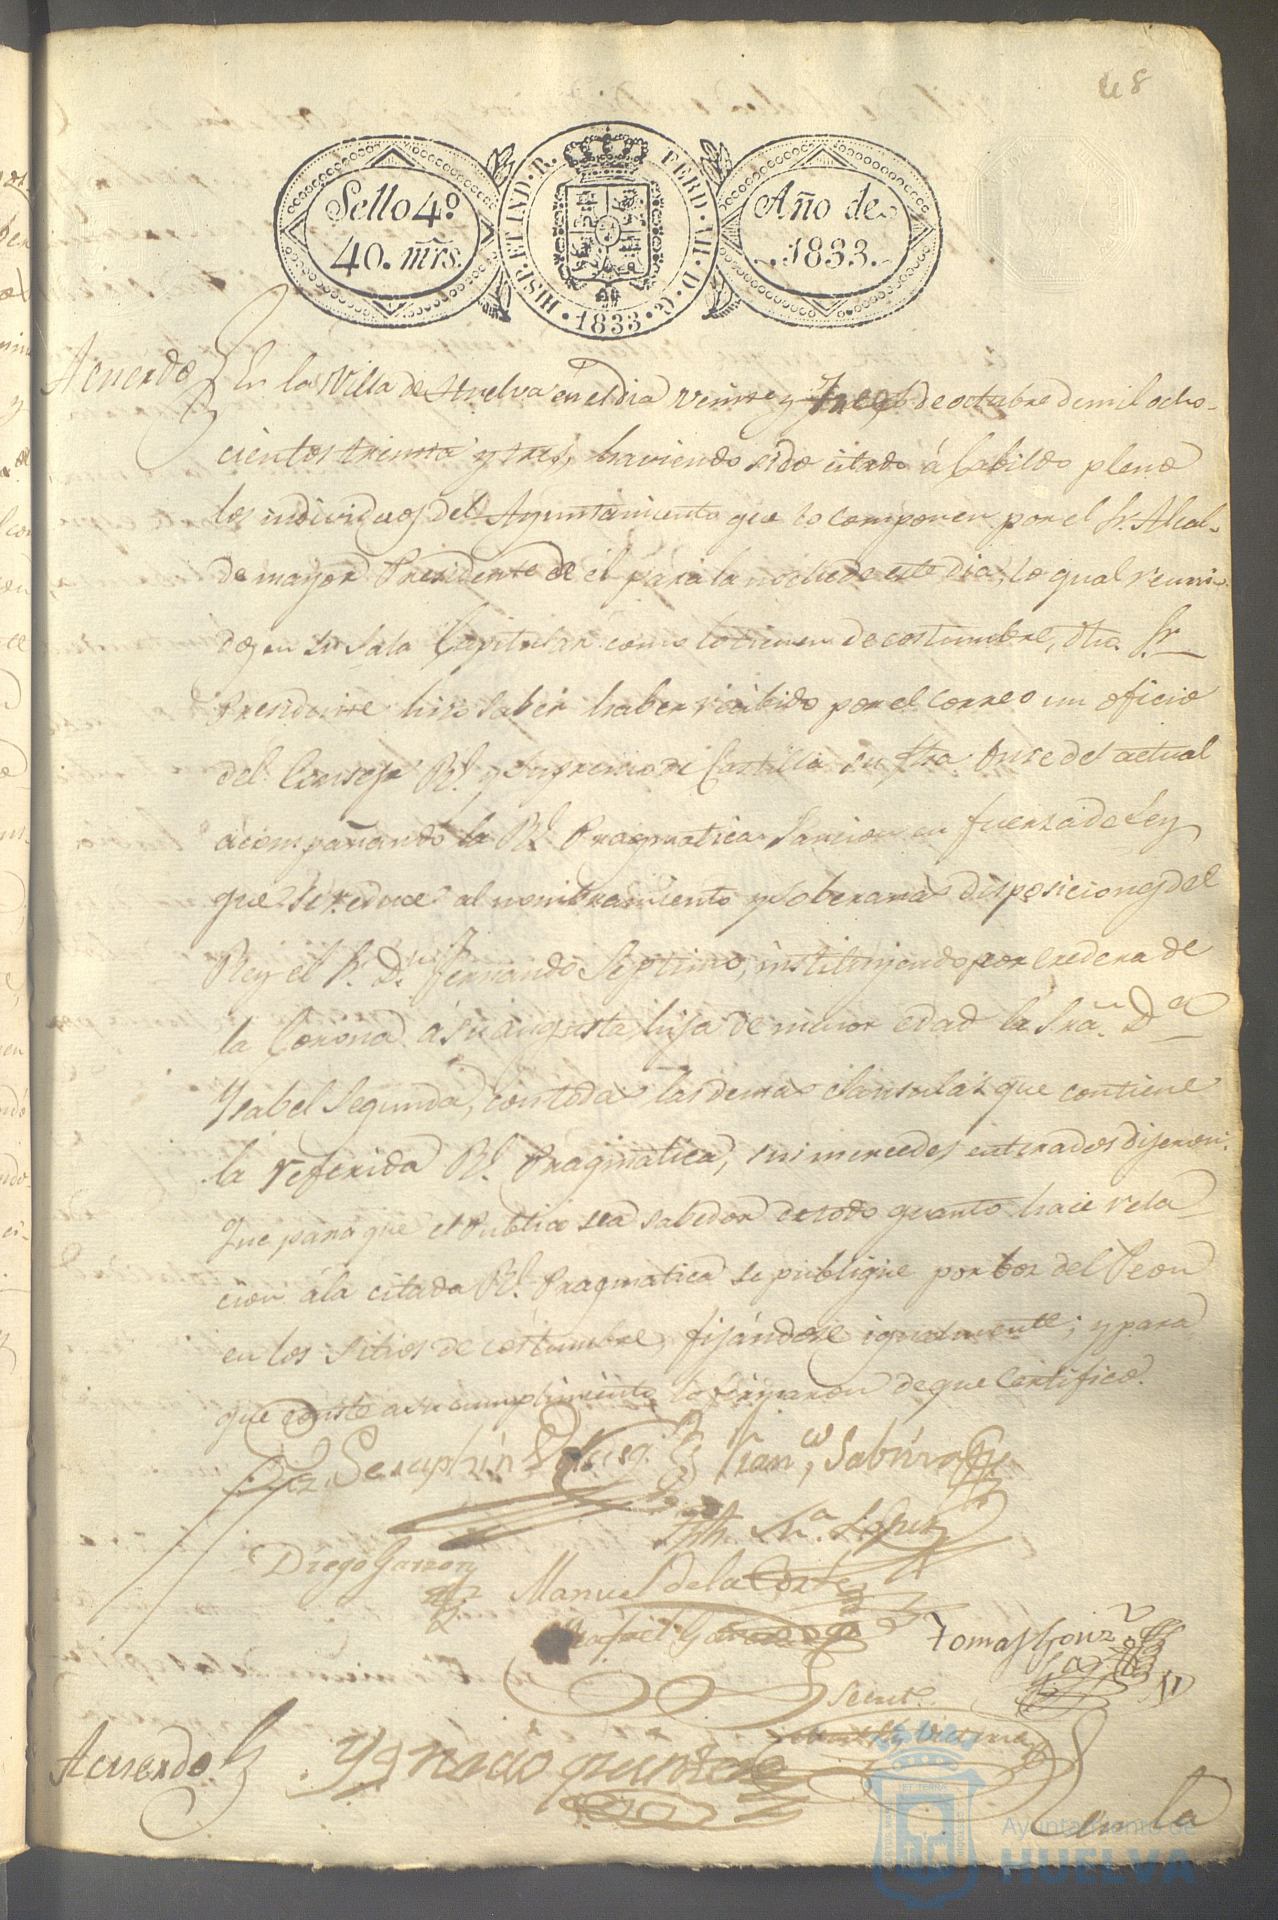 48
Sello 4º
40. mrs.
HISP. ET IND. R. FERD. VII. D. G.
1833
Año de
1833.
Acuerdo En la Villa de Huelva en el dia veinte y tres de octubre de mil ocho-
cientos treinta y tres, haviendo sido citado á Cabildo pleno
los individuos del Ayuntamiento que lo componen por el Sr. Alcal-
de mayor Presidente de él para la noche de este dia, lo qual reuni-
dos en su Sala Capitular como lo tienen de costumbre, dho. Sr.
Presidente hizo saber haber recibido por el Correo un oficio
del Consejo Rl. y Supremo de Castilla su fha. Onse del actual
acompañando la Rl. Pragmatica Sancion en fuerza de Ley
que se reduce al nombramiento y soberanas disposiciones del
Rey el Sr. Dn. Fernando Septimo, instituyendo por eredera de
la Corona á su augusta hija de menor edad la Sra. Da.
Ysabel Segunda, con todas las demas clausulas que contiene
la referida Rl. Pragmatica, sus mercedes enterados dijeron:
Que para que el Publico sea sabedor de todo quanto hace rela
cion á la citada Rl. Pragmatica se publique por boz del Peon
en los Sitios de costumbre, fijándose igualmente; y para
que conste a su cumplimiento lo firmaron de que Certifico.
Seraphin Franco. Sabúrido
Ma. Lopez
Diego Garzon Manuel de la Corte
Rafael Tomas Gonz
Secret.
Acuerdo Ygnacio quintero
En la
Ayuntamiento de
HUELVA